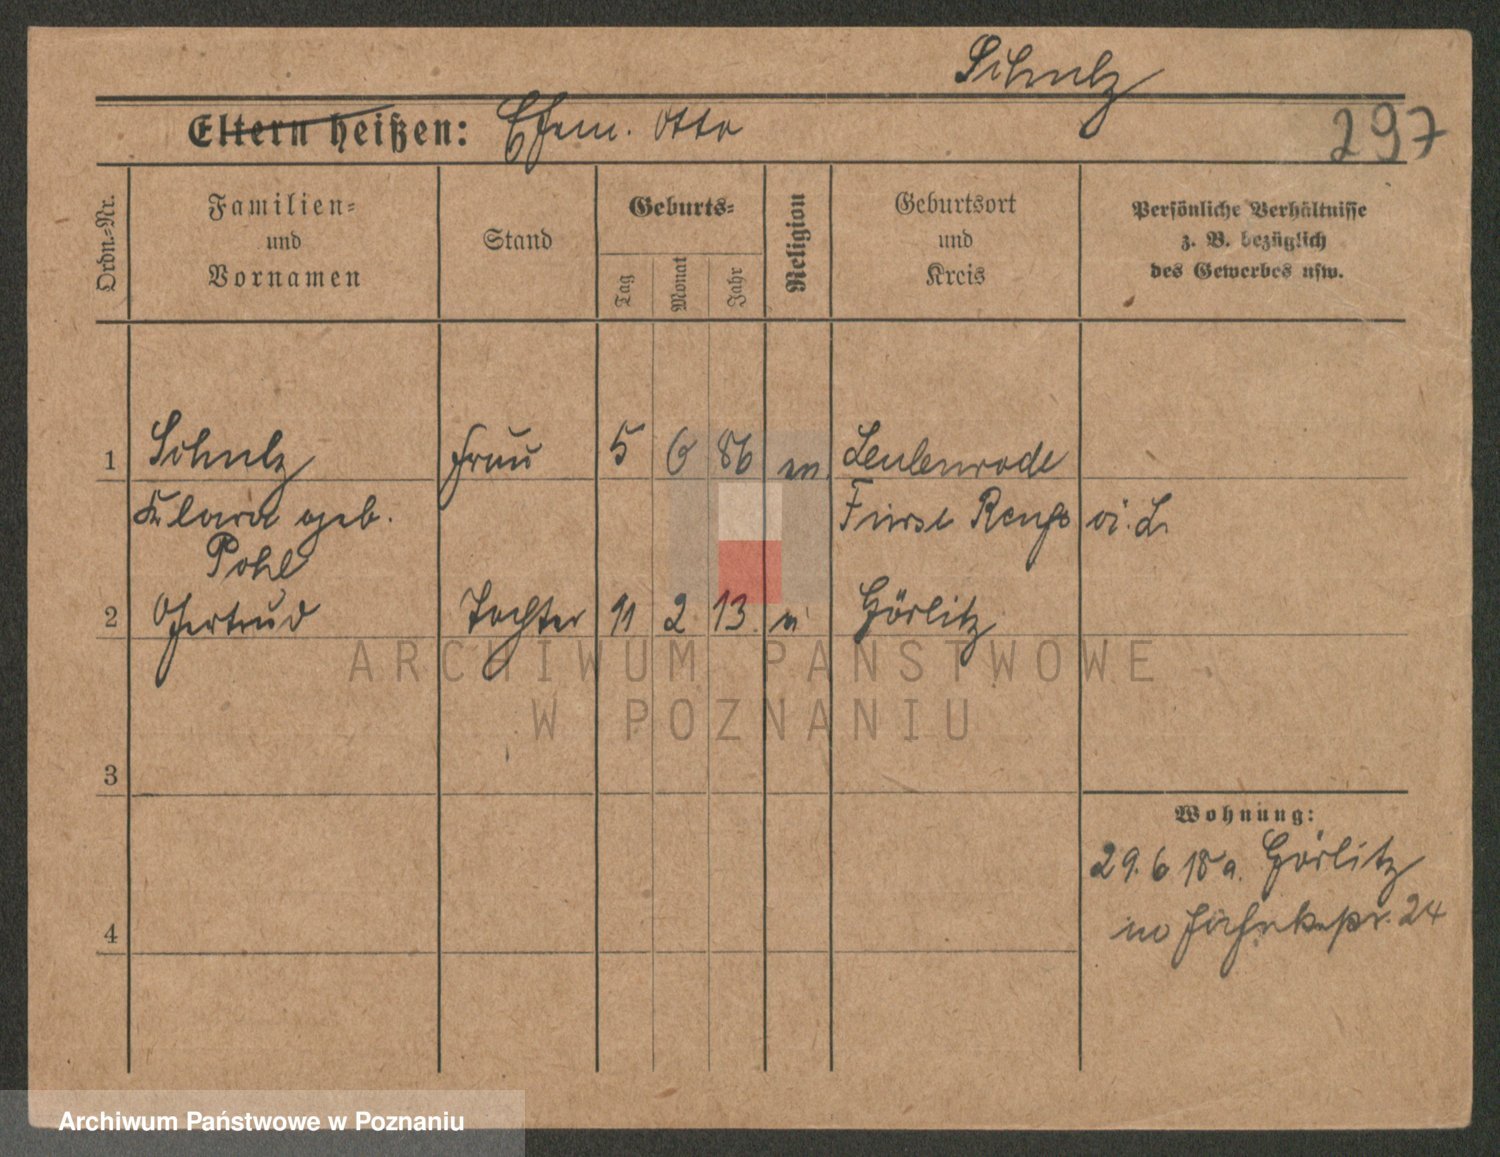 Schulz
Eltern heißen: Ehem. Otto
297
Ordn.-Nr.
Familien-
und
Vornamen
Stand
Geburts-
Tag
Monat
Jahr
Religion
Geburtsort
und
Kreis
Persönliche Verhältnisse
z. B. bezüglich
des Gewerbes usw.
1 Schulz Frau 5 6 86
Klara geb.
Pohl
2 Gertrud Tochter 11 2 13 Görlitz
ARCHIWUM PAŃSTWOWE
W POZNANIU
3
Wohnung:
29. 6 18 a. Görlitz
24
4
Archiwum Państwowe w Poznaniu